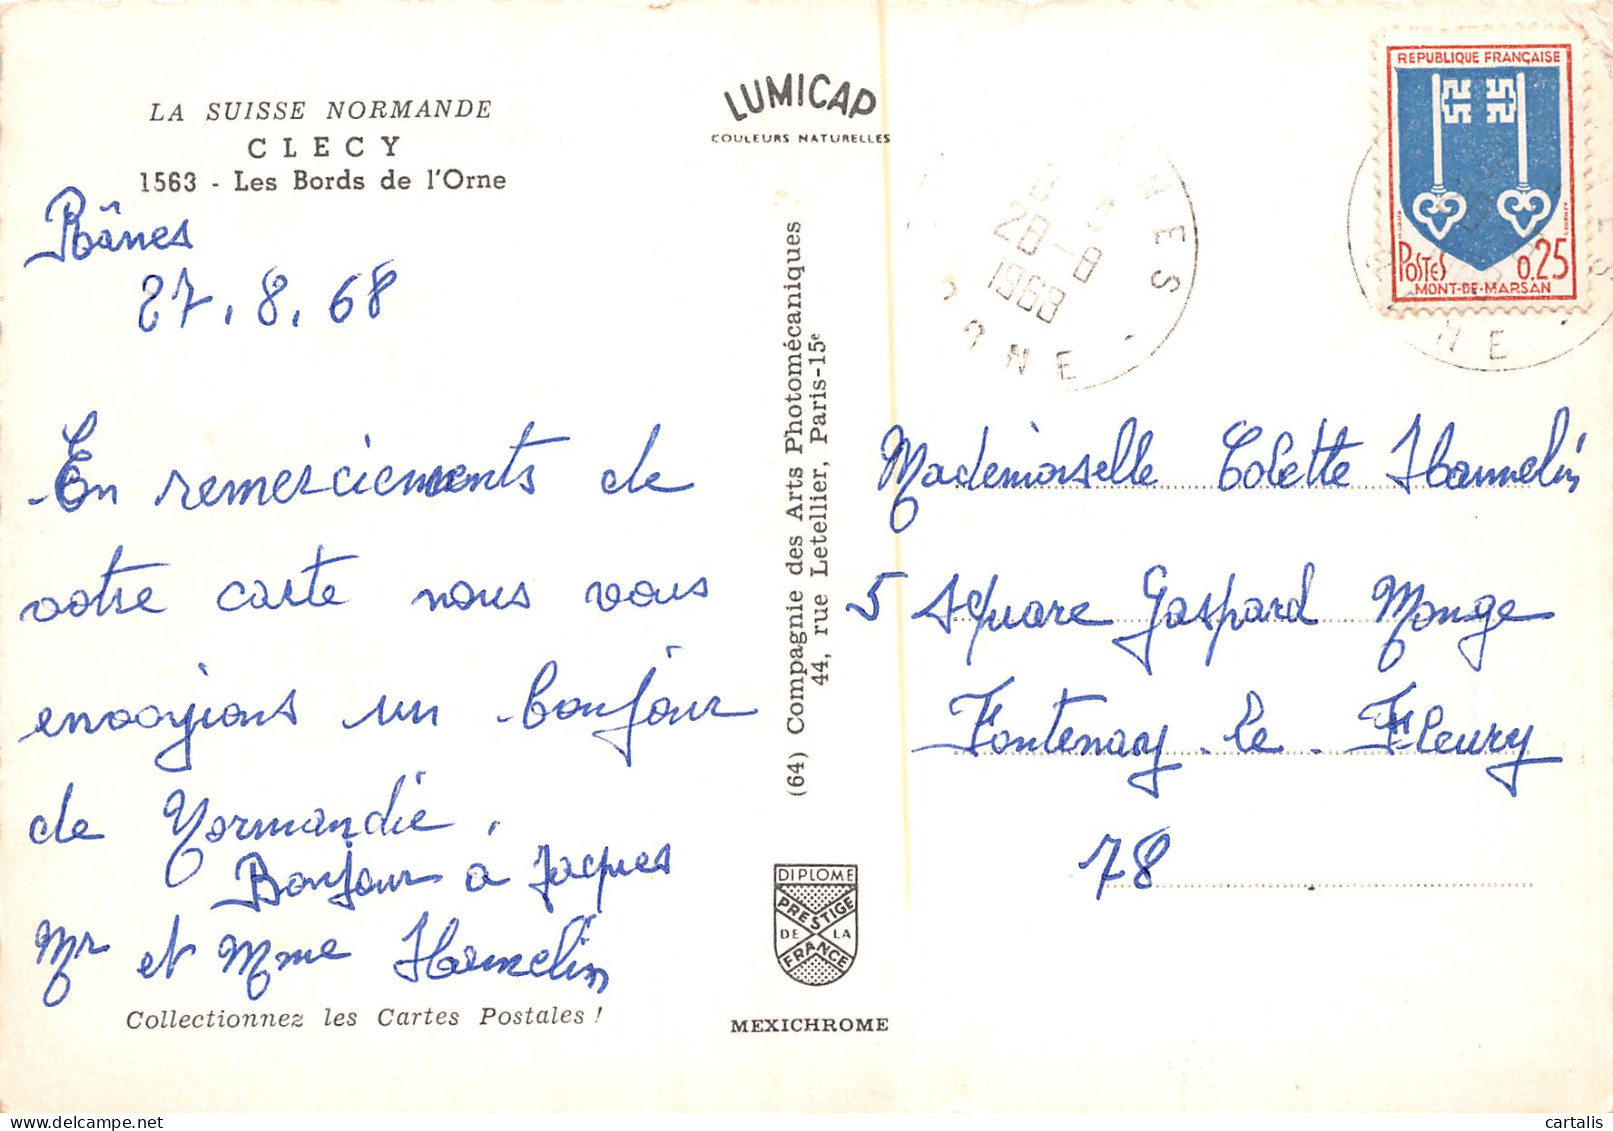 LA SUISSE NORMANDE
CLECY
1563 - Les Bords de l'Orne
Rânes
27.8.68
En remerciements de
votre carte nous vous
envoyions un bonjour
de Normandie.
Bonjour à Jacques
Mr et Mme Hamelin
Collectionnez les Cartes Postales !
LUMICAP
COULEURS NATURELLES
(64) Compagnie des Arts Photomécaniques
44, rue Letellier, Paris-15e
DIPLOME
PRESTIGE
DE LA
FRANCE
MEXICHROME
28-8
1968
ORNE
REPUBLIQUE FRANÇAISE
POSTES 0.25
MONT-DE-MARSAN
Mademoiselle Colette Hammelin
5 square Gaspard Monge
Fontenay-le-Fleury
78
cartalis